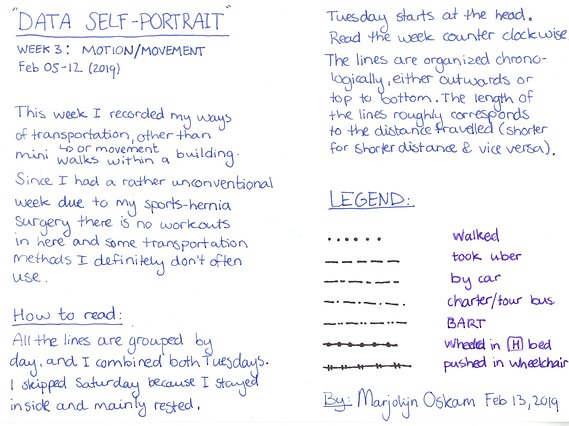 "DATA SELF-PORTRAIT"
WEEK 3: MOTION/MOVEMENT
Feb 05-12 (2019)
This week I recorded my ways
of transportation, other than
or movement
mini walks within a building.
Since I had a rather unconventional
week due to my sports-hernia
surgery there is no workouts
in here and some transportation
methods I definitely don't often
use.
How to read:
All the lines are grouped by
day, and I combined both Tuesdays.
I skipped Saturday because I stayed
inside and mainly rested.
Tuesday starts at the head.
Read the week counter clockwise
The lines are organized chrono-
logically, either outwards or
top to bottom. The length of
the lines roughly corresponds
to the distance travelled (shorter
for shorter distance & vice versa).
LEGEND:
walked
took uber
by car
charter/tour bus
BART
wheeled in H bed
pushed in wheelchair
By: Marjolijn Oskam Feb 13, 2019